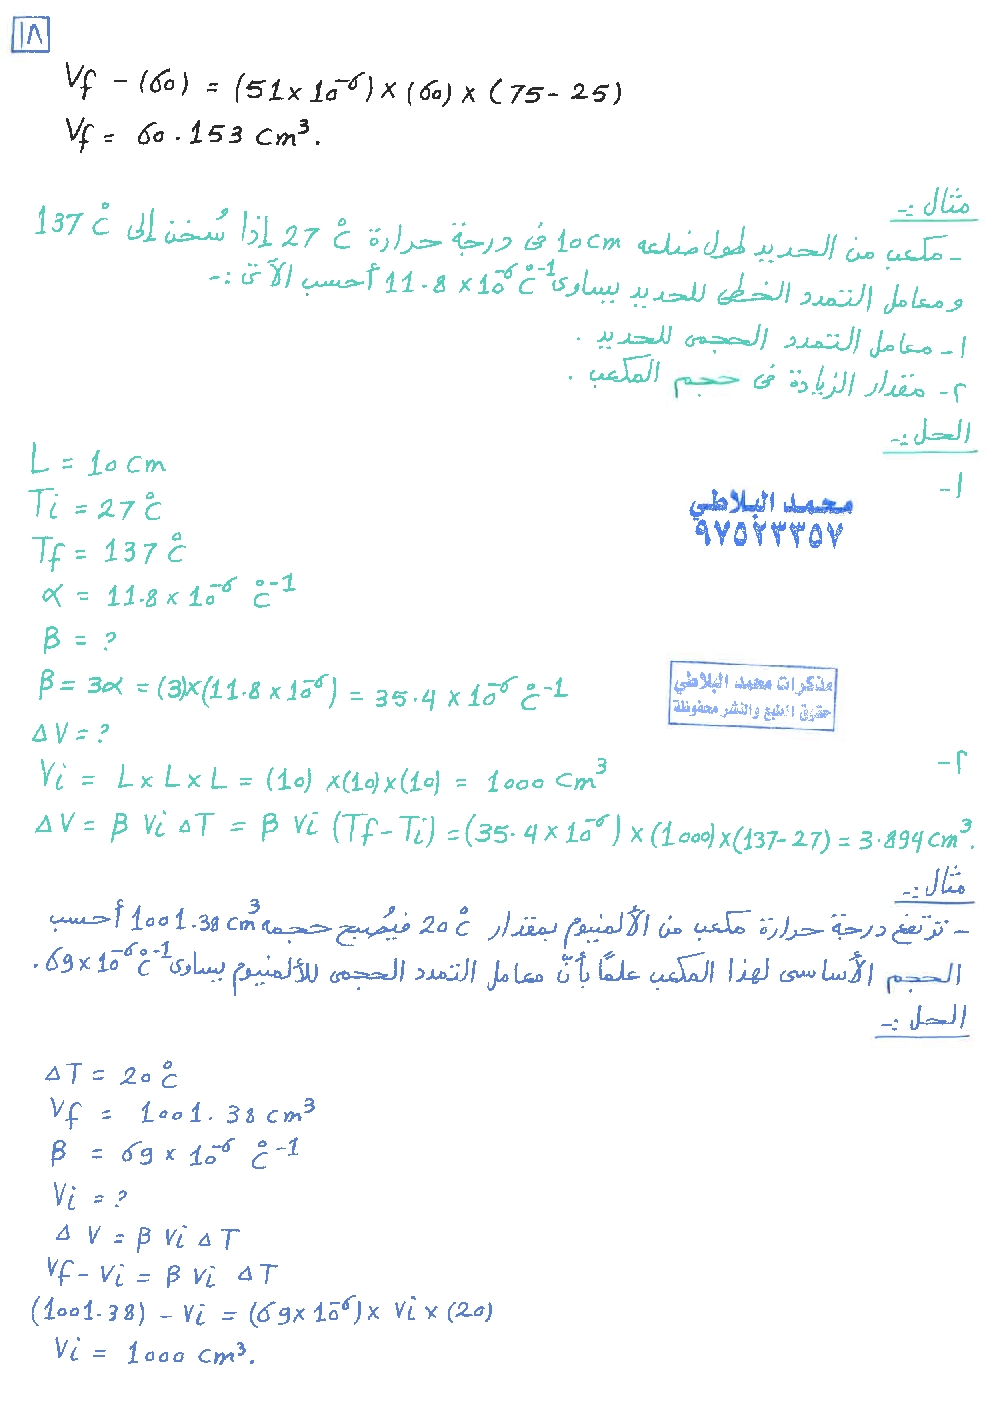 ١٨
Vf - (60) = (51×10⁻⁶) × (60) × (75-25)
Vf = 60.153 cm³.
مثال :-
- مكعب من الحديد طول ضلعه 10 cm فى درجة حرارة 27 °C إذا سُخن إلى 137 °C
ومعامل التمدد الخطى للحديد يساوى 11.8 × 10⁻⁶ °C⁻¹ أحسب الآتى :-
١- معامل التمدد الحجمى للحديد .
٢- مقدار الزيادة فى حجم المكعب .
الحل :-
١-
L = 10 cm
Ti = 27 °C
محمد البلاطي
٩٧٥٢٣٣٥٧
Tf = 137 °C
α = 11.8 × 10⁻⁶ °C⁻¹
β = ?
β = 3α = (3)×(11.8 × 10⁻⁶) = 35.4 × 10⁻⁶ °C⁻¹
مذكرات محمد البلاطي
حقوق الطبع والنشر محفوظة
ΔV = ?
٢-
Vi = L × L × L = (10) × (10) × (10) = 1000 cm³
ΔV = β Vi ΔT = β Vi (Tf - Ti) = (35.4 × 10⁻⁶) × (1000) × (137-27) = 3.894 cm³.
مثال :-
- ترتفع درجة حرارة مكعب من الألمنيوم بمقدار 20 °C فيُصبح حجمه 1001.38 cm³ أحسب
الحجم الأساسى لهذا المكعب علمًا بأنّ معامل التمدد الحجمى للألمنيوم يساوى 69 × 10⁻⁶ °C⁻¹ .
الحل :-
ΔT = 20 °C
Vf = 1001.38 cm³
β = 69 × 10⁻⁶ °C⁻¹
Vi = ?
ΔV = β Vi ΔT
Vf - Vi = β Vi ΔT
(1001.38) - Vi = (69 × 10⁻⁶) × Vi × (20)
Vi = 1000 cm³.